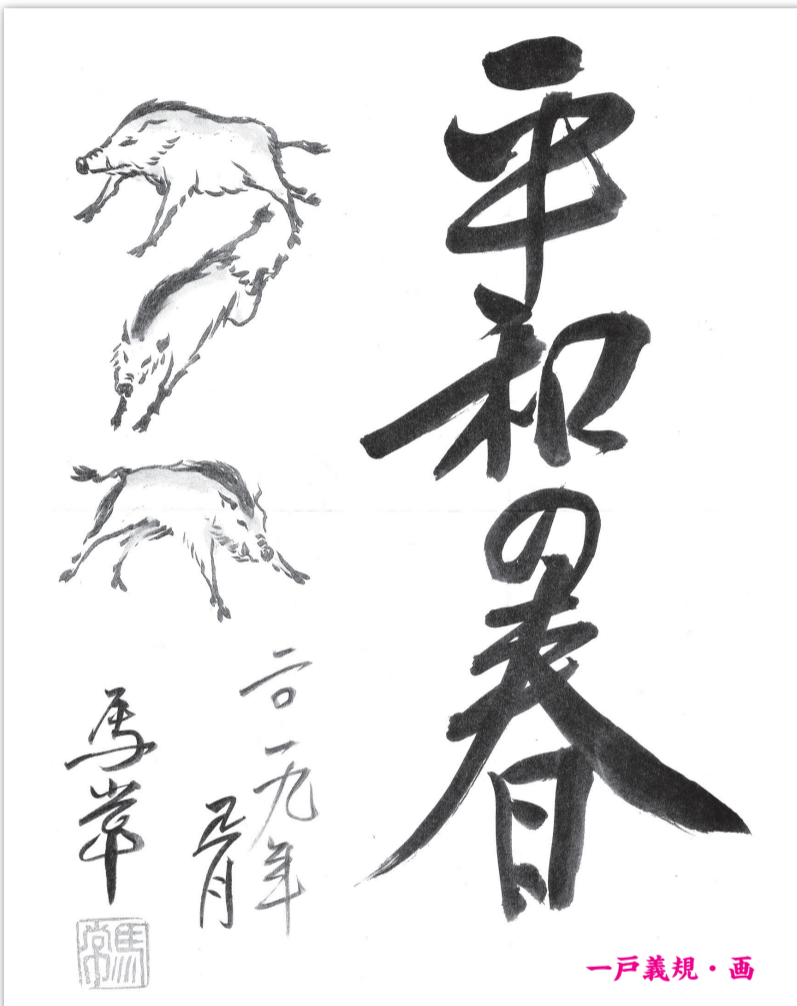 平和の春
二〇一九年
正月
馬常
馬常
一戸義規・画